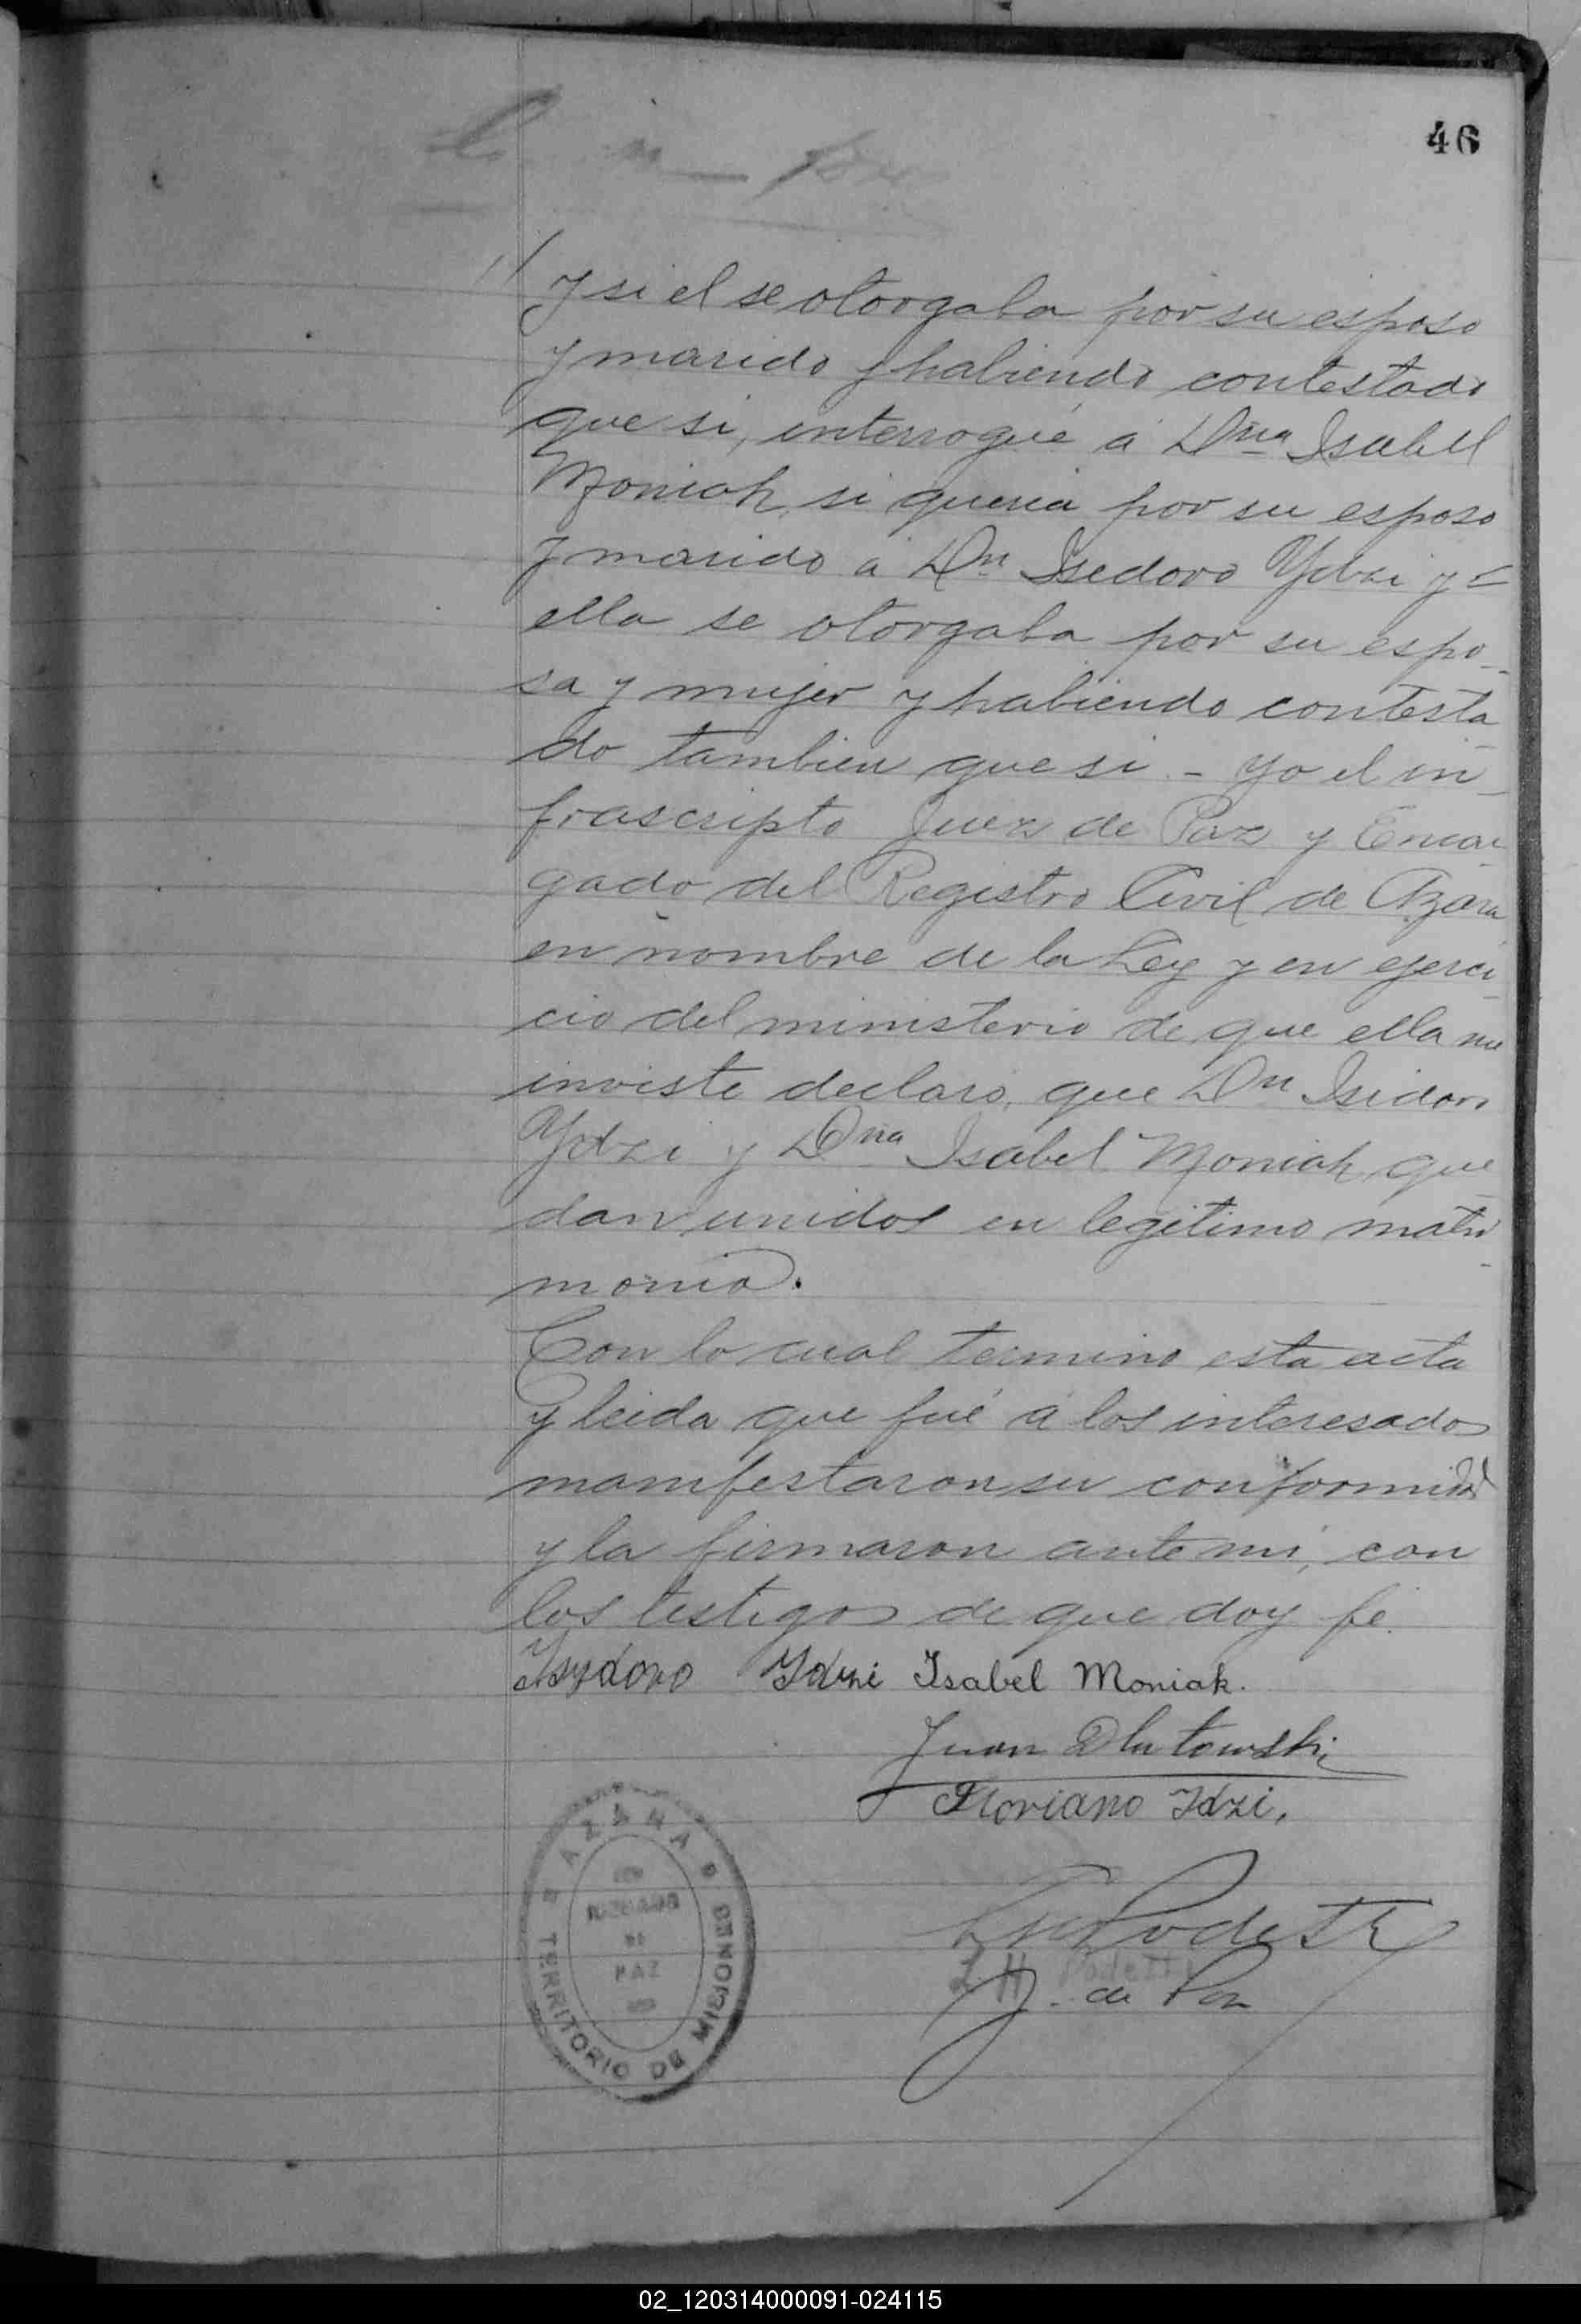 46
// y si el se otorgaba por su esposo
y marido y habiendo contestado
que si, interrogué á Dña Isabel
Moniak, si queria por su esposo
y marido á Dn Isedoro Ydzi y =
ella se otorgaba por su espo-
sa y mujer y habiendo contesta-
do tambien que si - Yo el in-
frascripto Juez de Paz y Encar-
gado del Registro Civil de Azara
en nombre de la Ley y en ejerci-
cio del ministerio de que ella me
inviste declaro, que Dn Isidoro
Ydzi y Dña Isabel Moniak, que
dan unidos en legitimo matri-
monio.
Con lo cual termino esta acta
y leida que fué á los interesados
manifestaron su conformidad
y la firmaron ante mi, con
los testigos de que doy fé.
Isydoro Idzi Isabel Moniak.
Juan Dlutowski
Floriano Idzi.
Podesti
L H Podetti
J. de Paz
AZARA
JUZGADO
DE
PAZ
TERRITORIO DE MISIONES
02_120314000091-024115